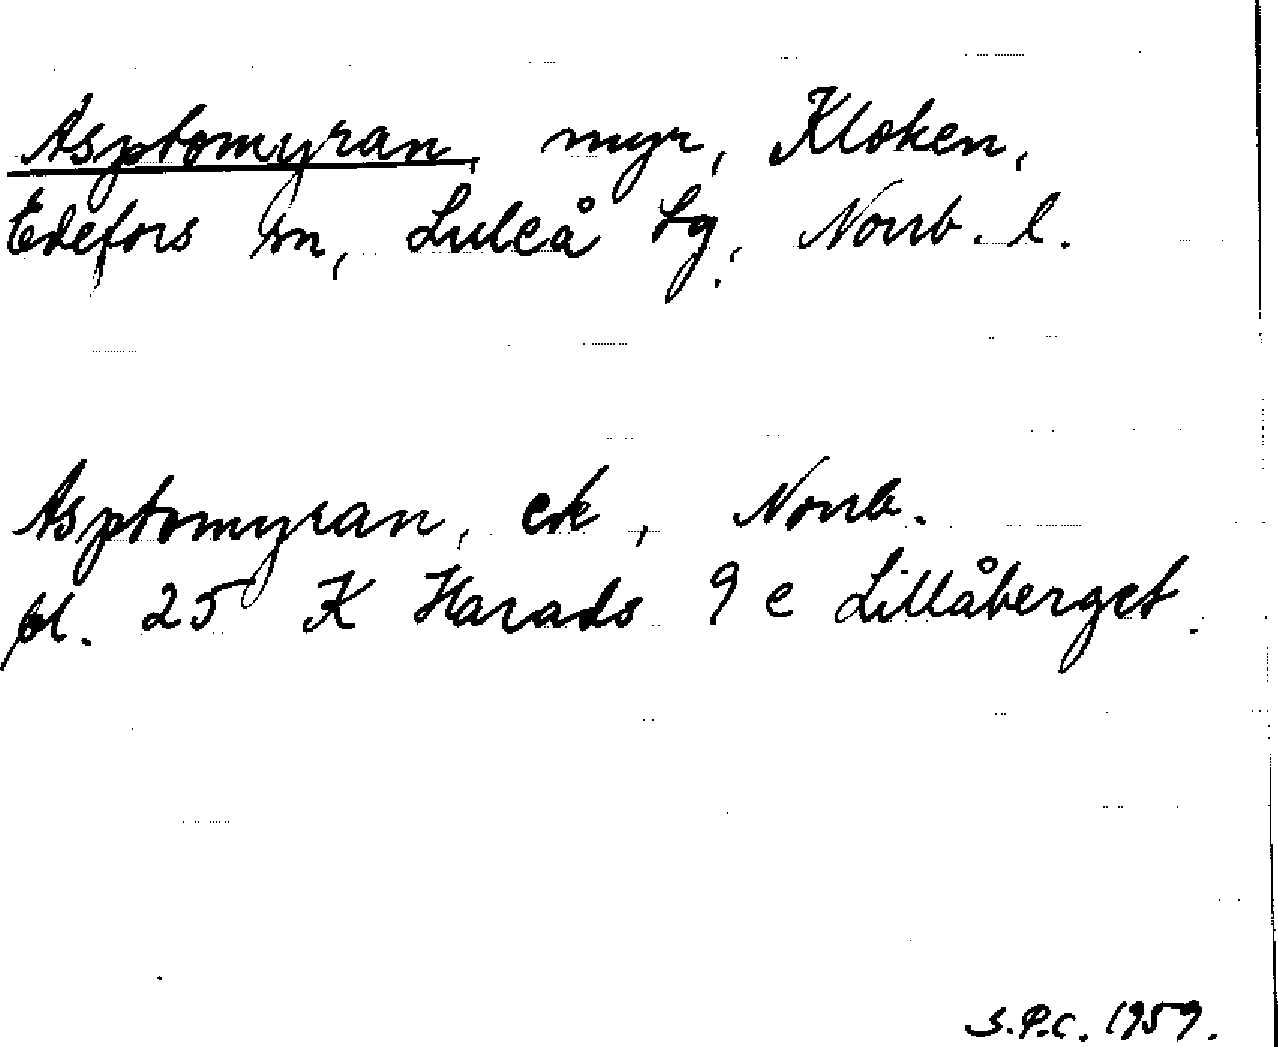 Asptomyran, myr, Kloken,
Edefors sn, Luleå tg, Norrb. l.
Asptomyran, ek, Norrb.
bl. 25 K Harads 9 e Lillåberget.
S.P.C. 1959.